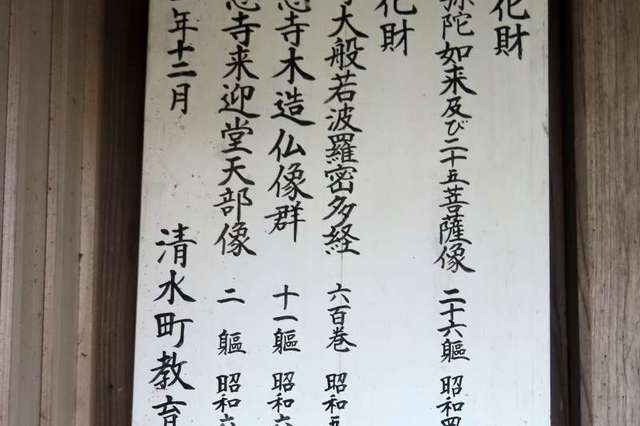 化財
弥陀如来及び二十五菩薩像 二十六軀 昭和四
化財
大般若波羅密多経 六百巻 昭和五
寺木造仏像群 十一軀 昭和六
寺来迎堂天部像 二 軀 昭和六
年十二月 清水町教育